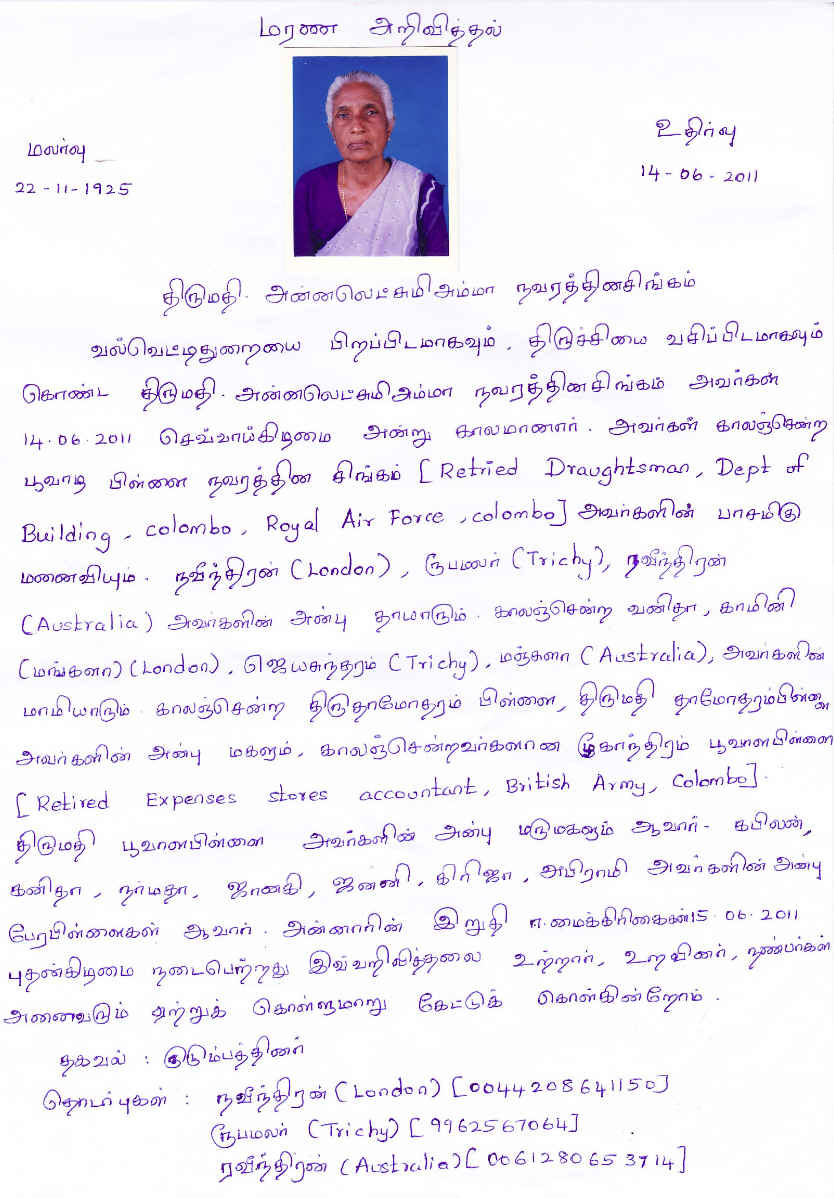 மரண அறிவித்தல்
மலர்வு
22-11-1925
உதிர்வு
14-06-2011
திருமதி. அன்னலெட்சுமிஅம்மா நவரத்தினசிங்கம்
வல்வெட்டிதுறையை பிறப்பிடமாகவும், திருச்சியை வசிப்பிடமாகவும்
கொண்ட திருமதி. அன்னலெட்சுமிஅம்மா நவரத்தினசிங்கம் அவர்கள்
14.06.2011 செவ்வாய்கிடிமை அன்று காலமானார். அவர்கள் காலஞ்சென்ற
பூவாடி பிள்ளை நவரத்தின சிங்கம் [Retried Draughtsman, Dept of
Building, colombo, Royal Air Force, colombo] அவர்களின் பாசமிகு
மனைவியும். நவீந்திரன் (London), ரூபமலர் (Trichy), ரவீந்திரன்
(Australia) அவர்களின் அன்பு தாயாரும். காலஞ்சென்ற வனிதா, காமினி
(மங்களா) (London), ஜெயசுந்தரம் (Trichy), மஞ்சுளா (Australia), அவர்களின்
மாமியாரும். காலஞ்சென்ற திருதாமோதரம் பிள்ளை, திருமதி தாமோதரம்பிள்ளை
அவர்களின் அன்பு மகளும், காலஞ்சென்றவர்களான பூவாளபிள்ளை
[Retired Expenses stores accountant, British Army, Colombo].
திருமதி பூவாளபிள்ளை அவர்களின் அன்பு மருமகளும் ஆவார்- கபிலன்,
கனிதா, நர்மதா, ஜானகி, ஜனனி, கிரிஜா, அபிராமி அவர்களின் அன்பு
பேரபிள்ளைகள் ஆவார். அன்னாரின் இறுதி ஈ.மைக்கிரிகைகள் 15.06.2011
புதன்கிடிமை நடைபெற்றது இவ்வறிவித்தலை உற்றார், உறவினர், நண்பர்கள்
அனைவரும் ஏற்றுக் கொள்ளுமாறு கேட்டுக் கொள்கின்றோம்.
தகவல் : குடும்பத்தினர்
தொடர்புகள் : நவீந்திரன் (London) [0044208641150]
ரூபமலர் (Trichy) [9962567064]
ரவீந்திரன் (Australia) [0061280653914]